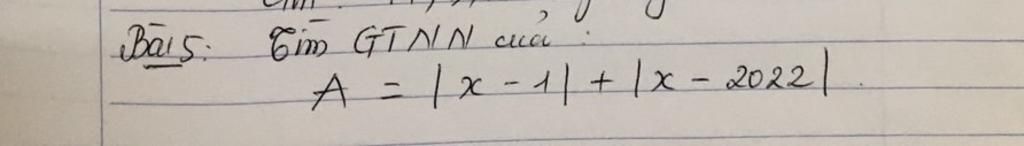 Bài 5: Tìm GTNN của :
A = |x - 1| + |x - 2022|